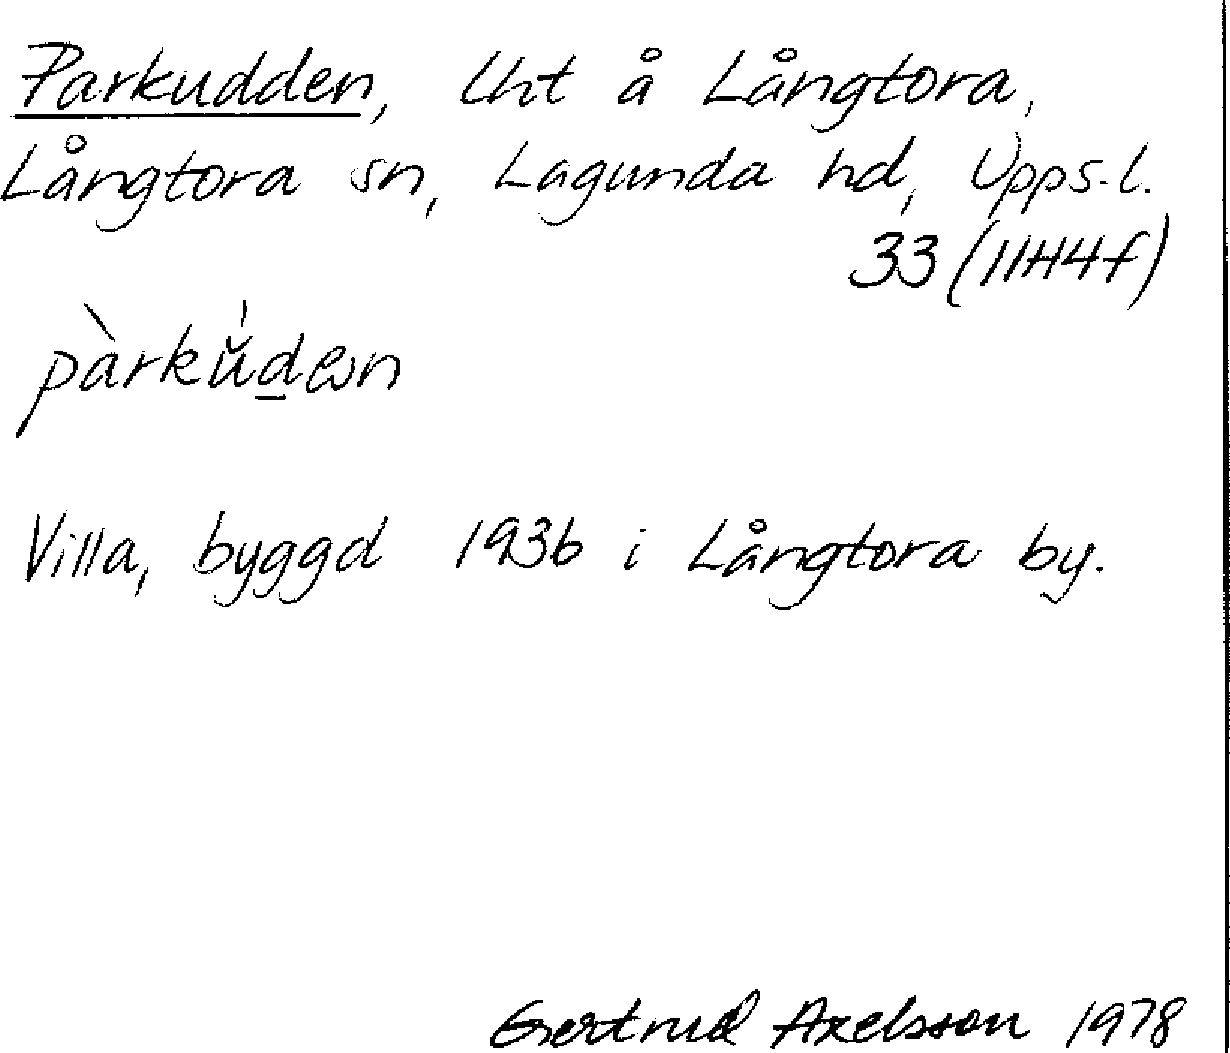 Parkudden, lht å Långtora,
Långtora sn, Lagunda hd, Upps. l.
33 (11H4f)
pàrkúden
Villa, byggd 1936 i Långtora by.
Gertrud Axelsson 1978